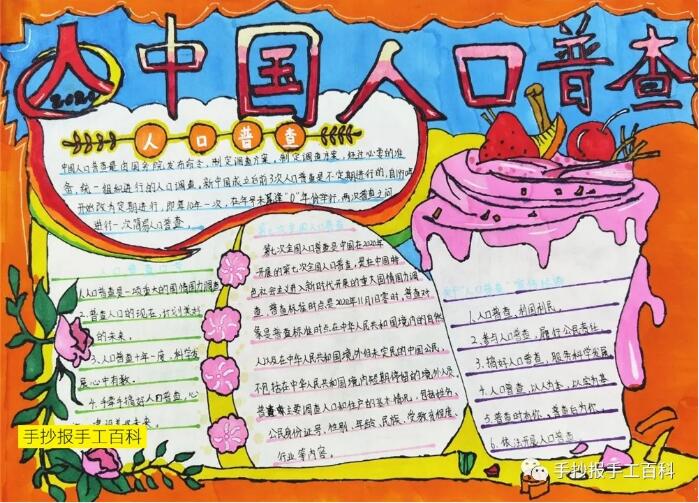 中国人口普查
2020
人口普查
中国人口普查是由国务院发布命令,制定调查方案,制定调查方案,经过必要的准
备,统一组织进行的人口调查,新中国成立后前3次人口普查是不定期进行的,自1990年
开始改为定期进行,即每10年一次,在年号末尾逢"0"年份举行,两次普查之间
进行一次简易人口普查。
1.人口普查是一项重大的国情国力调查
2.普查人口的现在,计划美好
的未来。
3.人口普查十年一度,科学发
展心中有数。
4.手牵手搞好人口普查,心
未来。
手抄报手工百科
第七次全国人口普查
第七次全国人口普查是中国在2020年
开展的第七次全国人口普查,是在中国特
色社会主义入新时代开展的重大国情国力调
查。普查标准时点是2020年11月1日零时,普查对
象是普查标准时点在中华人民共和国境内的自然
人以及在中华人民共和国境外但未定居的中国公民,
不包括在中华人民共和国境内短期停留的境外人员
普查主要调查人口和住户的基本情况,内容包括
公民身份证号,性别、年龄、民族、受教育程度、
行业等内容。
"人口普查"宣传标语
1.人口普查,利国利民。
2.参与人口普查,履行公民责任
3.搞好人口普查,服务科学发展
4.人口普查,以人为本,以家为基
5.普查时为你,普查后为你。
6.依法开展人口普查
手抄报手工百科